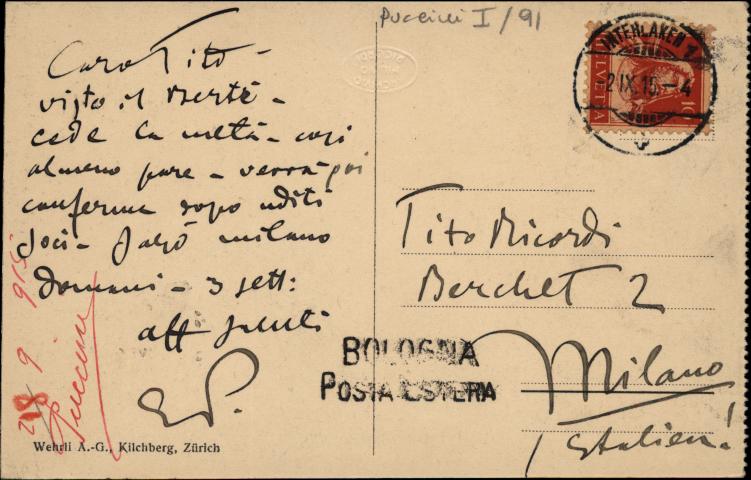 Puccini I/91
INTERLAKEN 1
-2.IX.15.-4
HELVETIA
10
Caro Tito -
visto il Berté -
cede la metà - così
almeno pare - verrà poi
conferma dopo uditi
soci - Sarò milano
domani - 3 sett:
aff saluti
Tito Ricordi
Berchet 2
Milano
(Italien!
BOLOGNA
POSTA ESTERA
9 915
Puccini
Wehrli A.-G., Kilchberg, Zürich